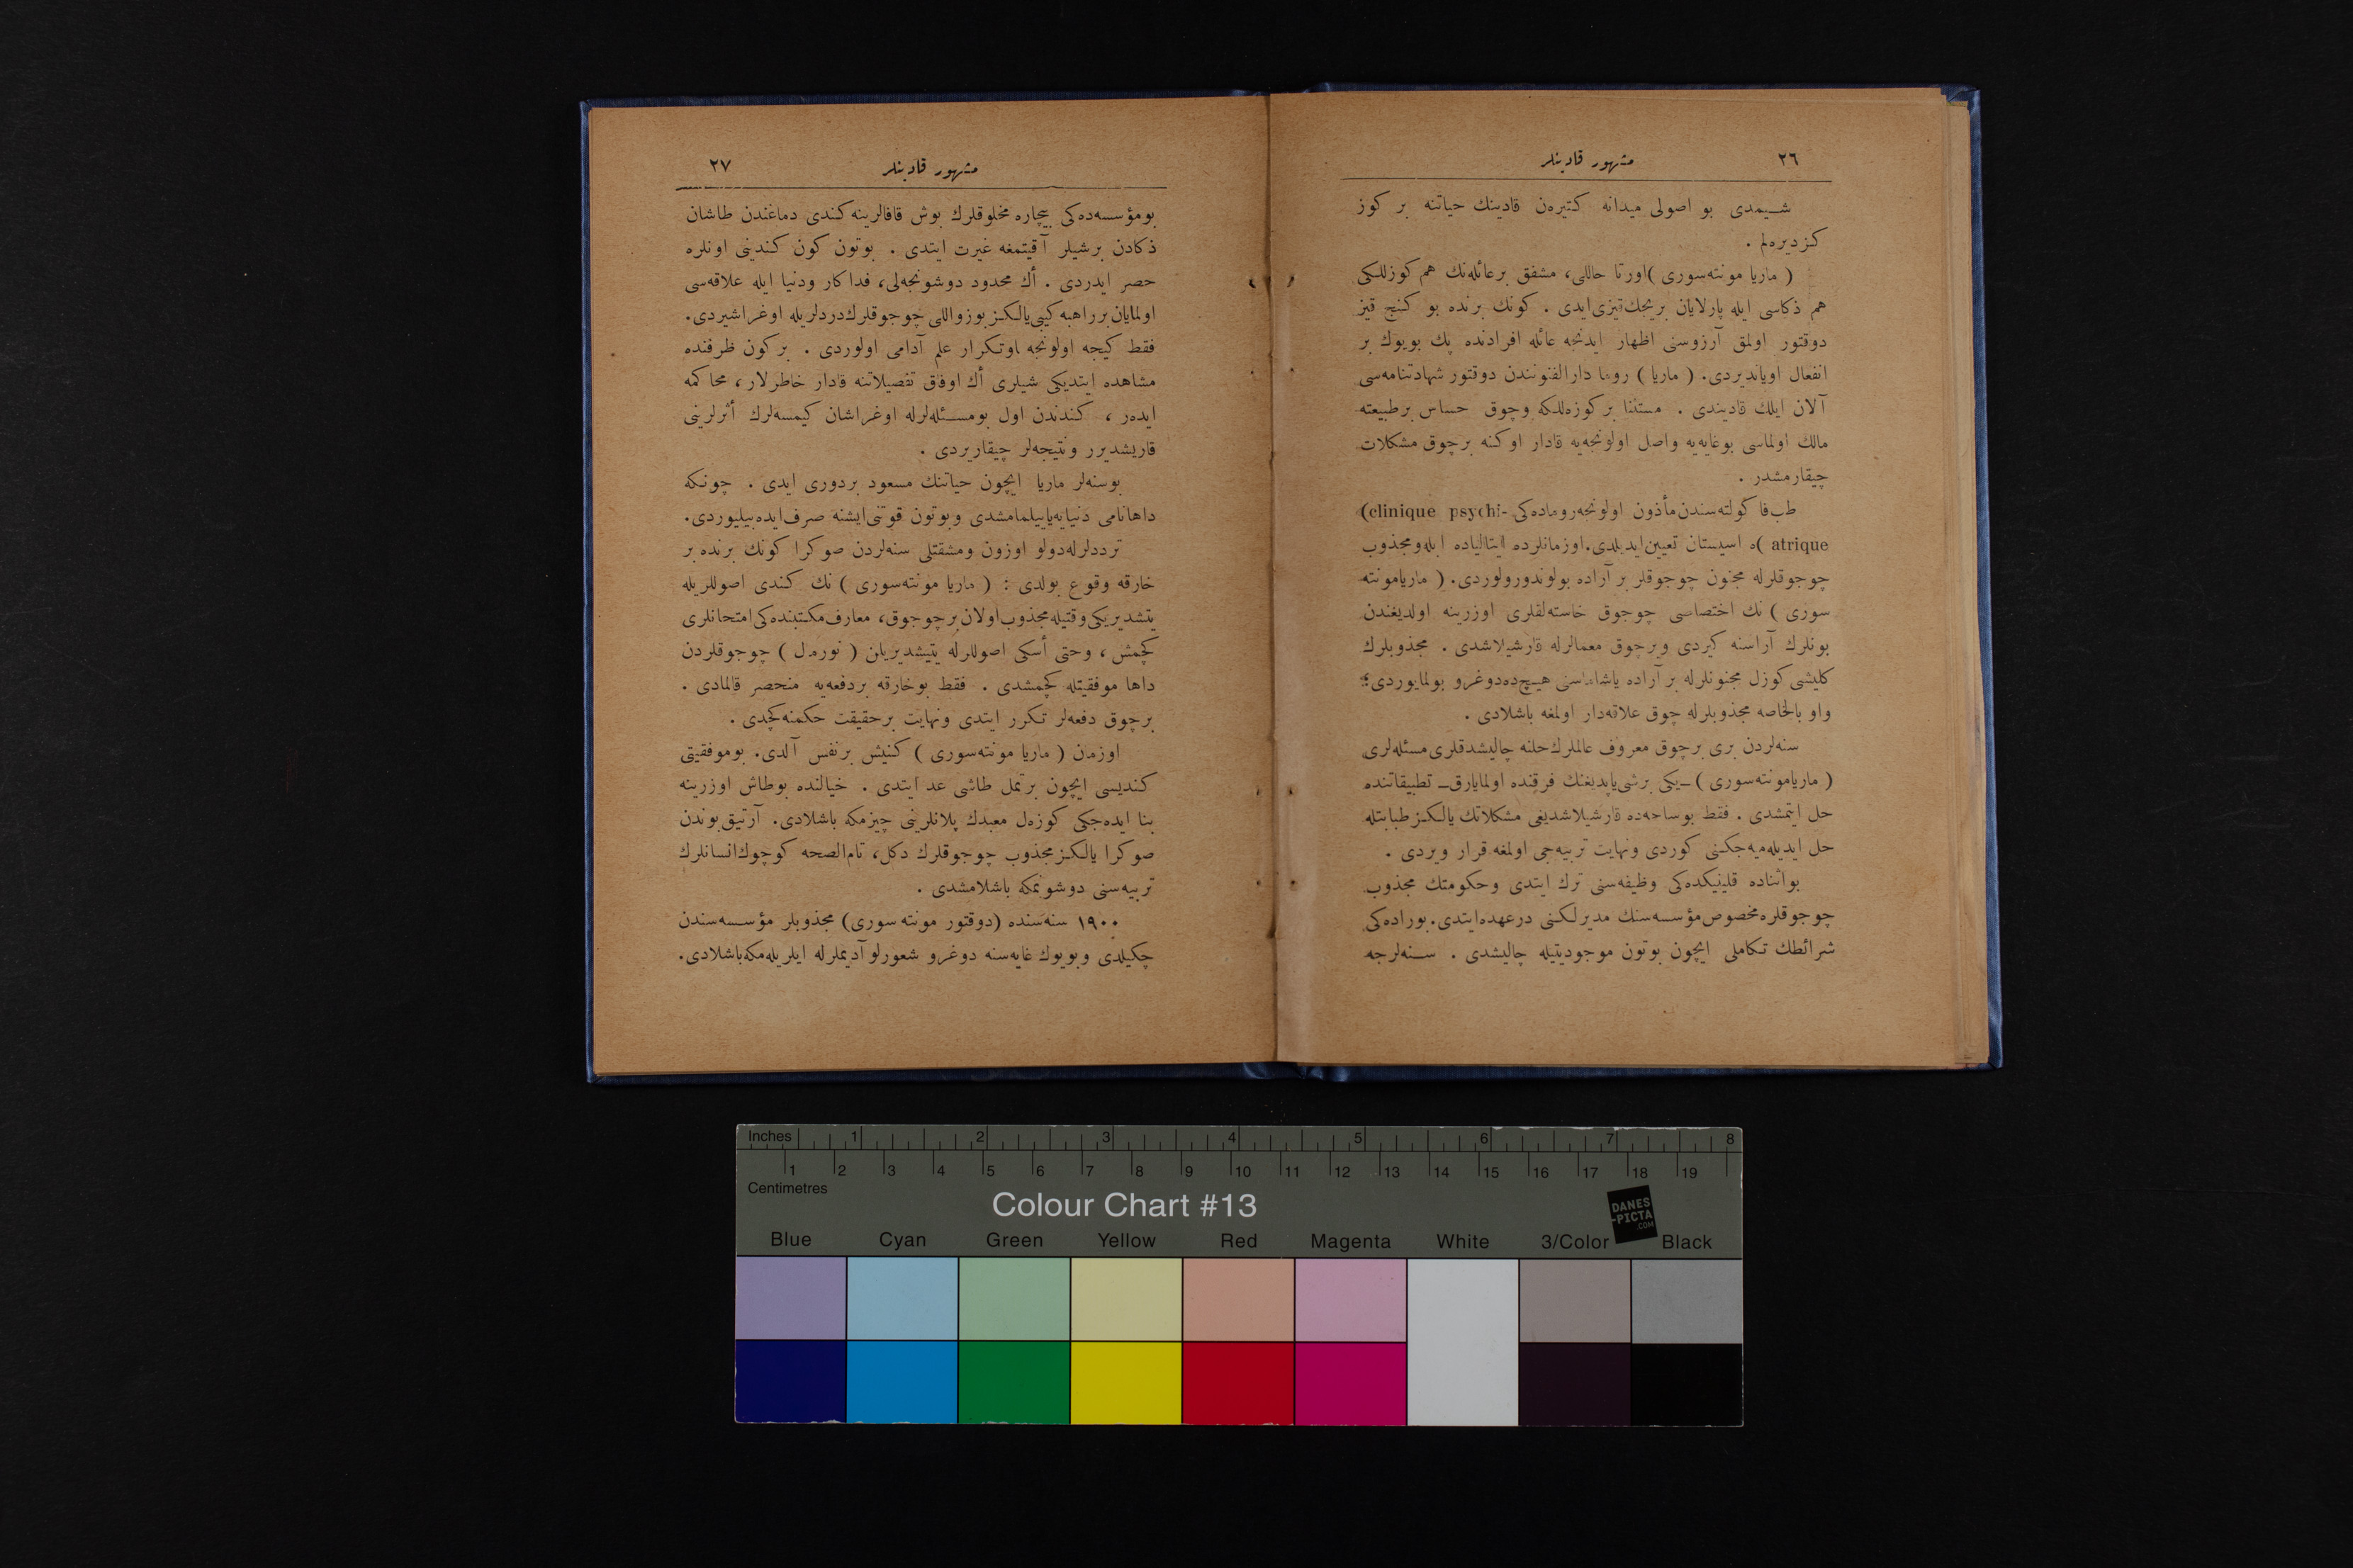 ٢٦
مشهور قادینلر
شیمدی بو اصولی میدانه کتیره‌ن قادینك حیاتنه بر کوز
کزدیره‌لم .
( ماریا مونته‌سوری ) اورتا حاللی، مشفق برعائله‌نك هم کوزللکی
هم ذکاسی ایله پارلایان بریجك قیزی ایدی . کونك برنده بو کنج قیز
دوقتور اولمق آرزوسنی اظهار ایدنجه عائله افرادنده پك بویوك بر
انفعال اویاندیردی. ( ماریا ) روما دارالفنونندن دوقتور شهادتنامه‌سی
آلان ایلك قادیندی . مستثنا بر کوزه‌للکه وچوق حساس برطبیعته
مالك اولماسی بوغایه‌یه واصل اولونجه‌یه قادار اوکنه برچوق مشکلات
چیقارمشدر .
طب فاکولته‌سندن مأذون اولونجه روماده‌کی (clinique psychi-
atrique )ه اسیستان تعیین ایدیلدی. اوزمانلرده ایتالیاده ابله و مجذوب
چوجوقلرله مجنون چوجوقلر بر آراده بولوندورولوردی. ( ماریامونته
سوری ) نك اختصاصی چوجوق خاسته‌لقلری اوزرینه اولدیغندن
بونلرك آراسنه کیردی وبرچوق معمالرله قارشیلاشدی . مجذوبلرك
کلیشی کوزل مجنونلرله بر آراده یاشاماسنی هیچ‌ده دوغرو بولمایوردی؛
واو بالخاصه مجذوبلرله چوق علاقه‌دار اولمغه باشلادی .
سنه‌لردن بری برچوق معروف عالملرك حلنه چالیشدقلری مسئله‌لری
( ماریامونته‌سوری ) ـ یکی برشی یاپدیغنك فرقنده اولمایارق ـ تطبیقاتنده
حل ایتمشدی . فقط بوساحه‌ده قارشیلاشدیغی مشکلاتك یالکز طبابتله
حل ایدیله‌میه‌جکنی کوردی ونهایت تربیه‌جی اولمغه قرار ویردی .
بواثناده قلینیکده‌کی وظیفه‌سنی ترك ایتدی وحکومتك مجذوب
چوجوقلره مخصوص مؤسسه‌سنك مدیرلکنی درعهده ایتدی. بوراده‌کی
شرائطك تکاملی ایچون بوتون موجودیتیله چالیشدی . سنه‌لرجه
مشهور قادینلر
٢٧
بومؤسسه‌ده‌کی بیچاره مخلوقلرك بوش قافالرینه کندی دماغندن طاشان
ذکادن برشیلر آقیتمغه غیرت ایتدی . بوتون کون کندینی اونلره
حصر ایدردی . أك محدود دوشونجه‌لی، فداکار ودنیا ایله علاقه‌سی
اولمایان برراهبه کیبی یالکز بوزواللی چوجوقلرك دردلریله اوغراشیردی.
فقط کیجه اولونجه اوتکرار علم آدامی اولوردی . برکون ظرفنده
مشاهده ایتدیکی شیلری أك اوفاق تفصیلاتنه قادار خاطرلار، محاکمه
ایده‌ر ، کندندن اول بومسئله‌لرله اوغراشان کیمسه‌لرك أثرلرینی
قاریشدیرر ونتیجه‌لر چیقاریردی .
بوسنه‌لر ماریا ایچون حیاتنك مسعود بردوری ایدی . چونکه
داهانامی دنیایه یاییلمامشدی وبوتون قوتنی ایشنه صرف ایده‌بیلیوردی.
ترددلرله دولو اوزون ومشقتلی سنه‌لردن صوکرا کونك برنده بر
خارقه وقوع بولدی : ( ماریا مونته‌سوری ) نك کندی اصوللریله
یتشدیریکی وقتیله مجذوب اولان برچوجوق، معارف مکتبنده‌کی امتحانلری
کچمش ، وحتی أسکی اصوللرله یتیشدیریلن ( نورمال ) چوجوقلردن
داها موفقیتله کچمشدی . فقط بوخارقه بردفعه‌یه منحصر قالمادی .
برچوق دفعه‌لر تکرر ایتدی ونهایت برحقیقت حکمنه کچدی .
اوزمان ( ماریا مونته‌سوری ) کنیش برنفس آلدی. بوموفقیتی
کندیسی ایچون برتمل طاشی عد ایتدی . خیالنده بوطاش اوزرینه
بنا ایده‌جکی کوزه‌ل معبدك پلانلرینی چیزمکه باشلادی. آرتیق بوندن
صوکرا یالکز مجذوب چوجوقلرك دکل، تام‌الصحه کوچوك انسانلرك
تربیه‌سنی دوشونمکه باشلامشدی .
١٩٠٠ سنه‌سنده (دوقتور مونته سوری) مجذوبلر مؤسسه‌سندن
چکیلدی وبویوك غایه‌سنه دوغرو شعورلو آدیملرله ایلریله‌مکه باشلادی.
Inches 1 2 3 4 5 6 7 8
1 2 3 4 5 6 7 8 9 10 11 12 13 14 15 16 17 18 19
Centimetres
Colour Chart #13
DANES
-PICTA
.COM
Blue Cyan Green Yellow Red Magenta White 3/Color Black